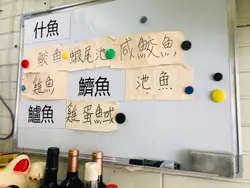 什魚
鮫魚 蝦尾池 咸鮫魚
雞魚 鱭魚 池魚
鱸魚 雞蛋魚或